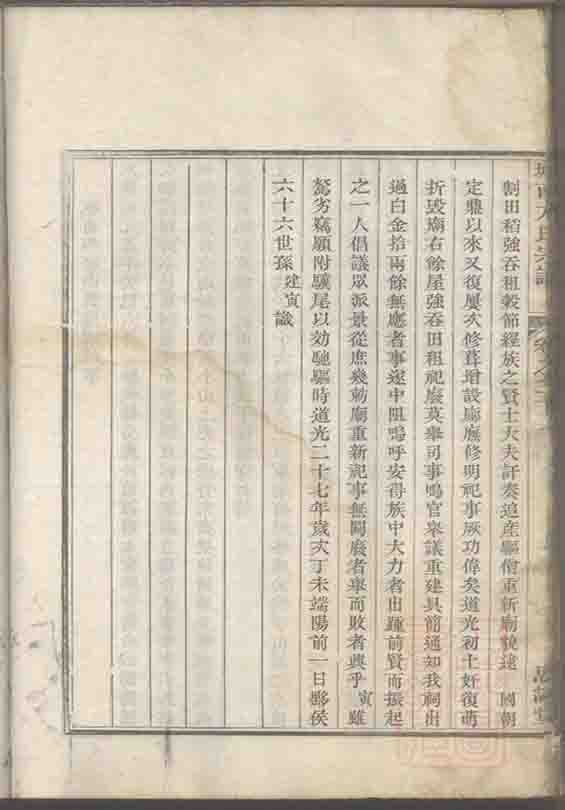 割田稻強吞租穀節經族之賢士大夫訐奏追産驅僧重新廟貌逮　國朝
定鼎以來又復屢次修葺增設廊廡修明祀事厥功偉矣道光初土奸復萌
折毀廟右餘屋強吞田租祀廢莫舉司事鳴官舉議重建具簡通知我祠出
過白金拾兩餘無應者事遂中阻嗚呼安得族中大力者出踵前賢而振起
之一人倡議眾派景從庶幾勅廟重新祀事無闕廢者舉而敗者興乎寅雖
駑劣竊願附驥尾以効馳驅時道光二十七年歲次丁未端陽前一日鄱侯
六十六世孫建寅識
氏宗譜